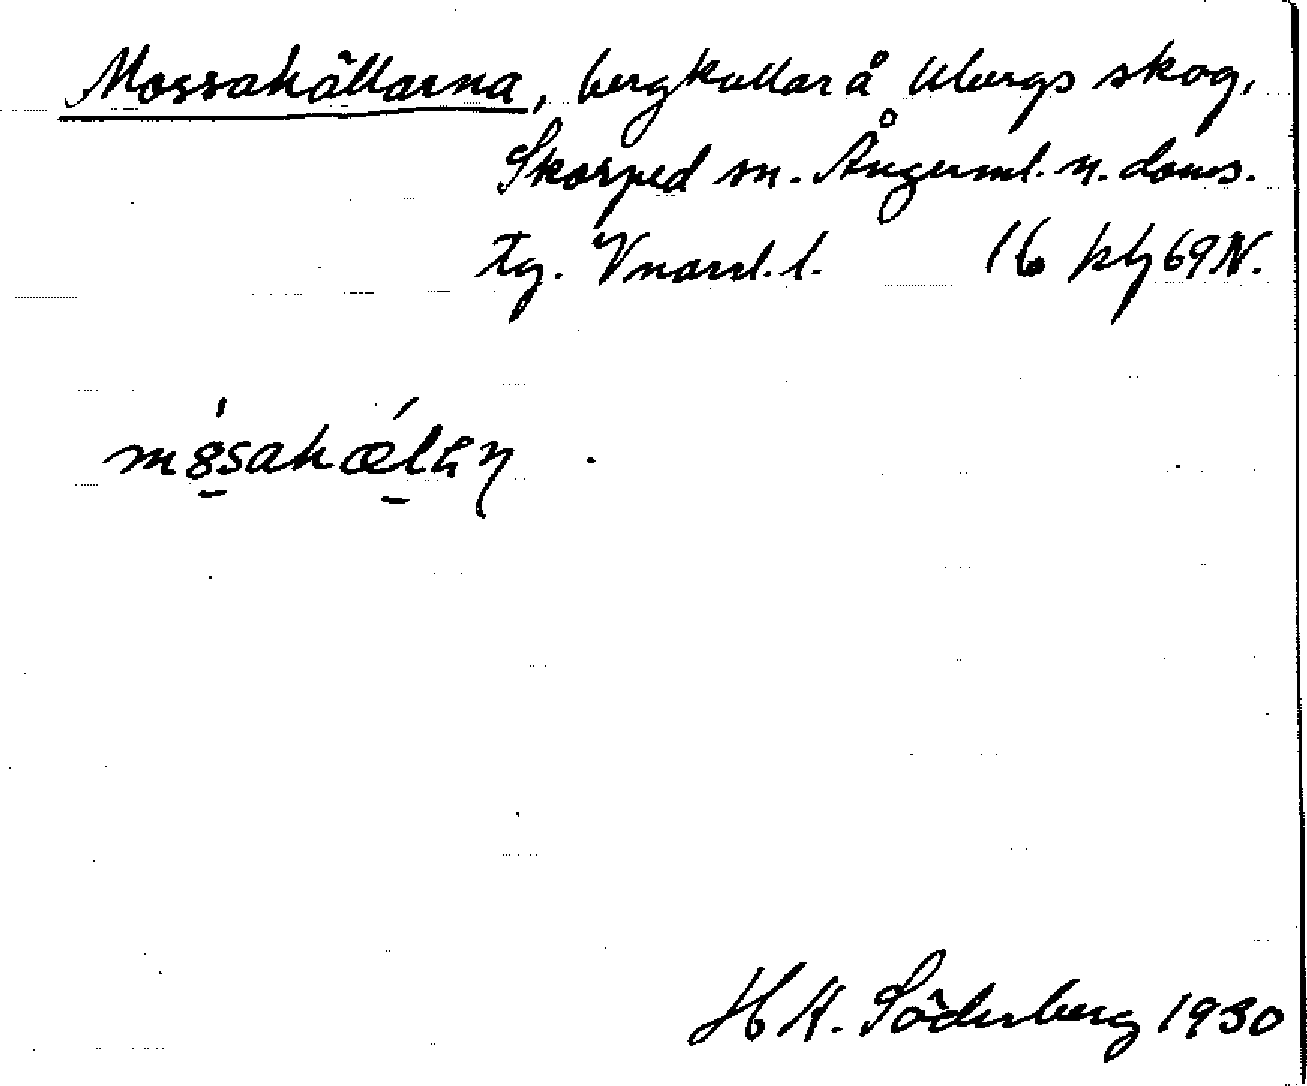 Mossakällarna, bergkullar å Ulvergs skog,
Skorped sn. Ångerml. n. doms.
tg. Vnorrl. l. 16 kbj 69 N.
H A. Söderberg 1930